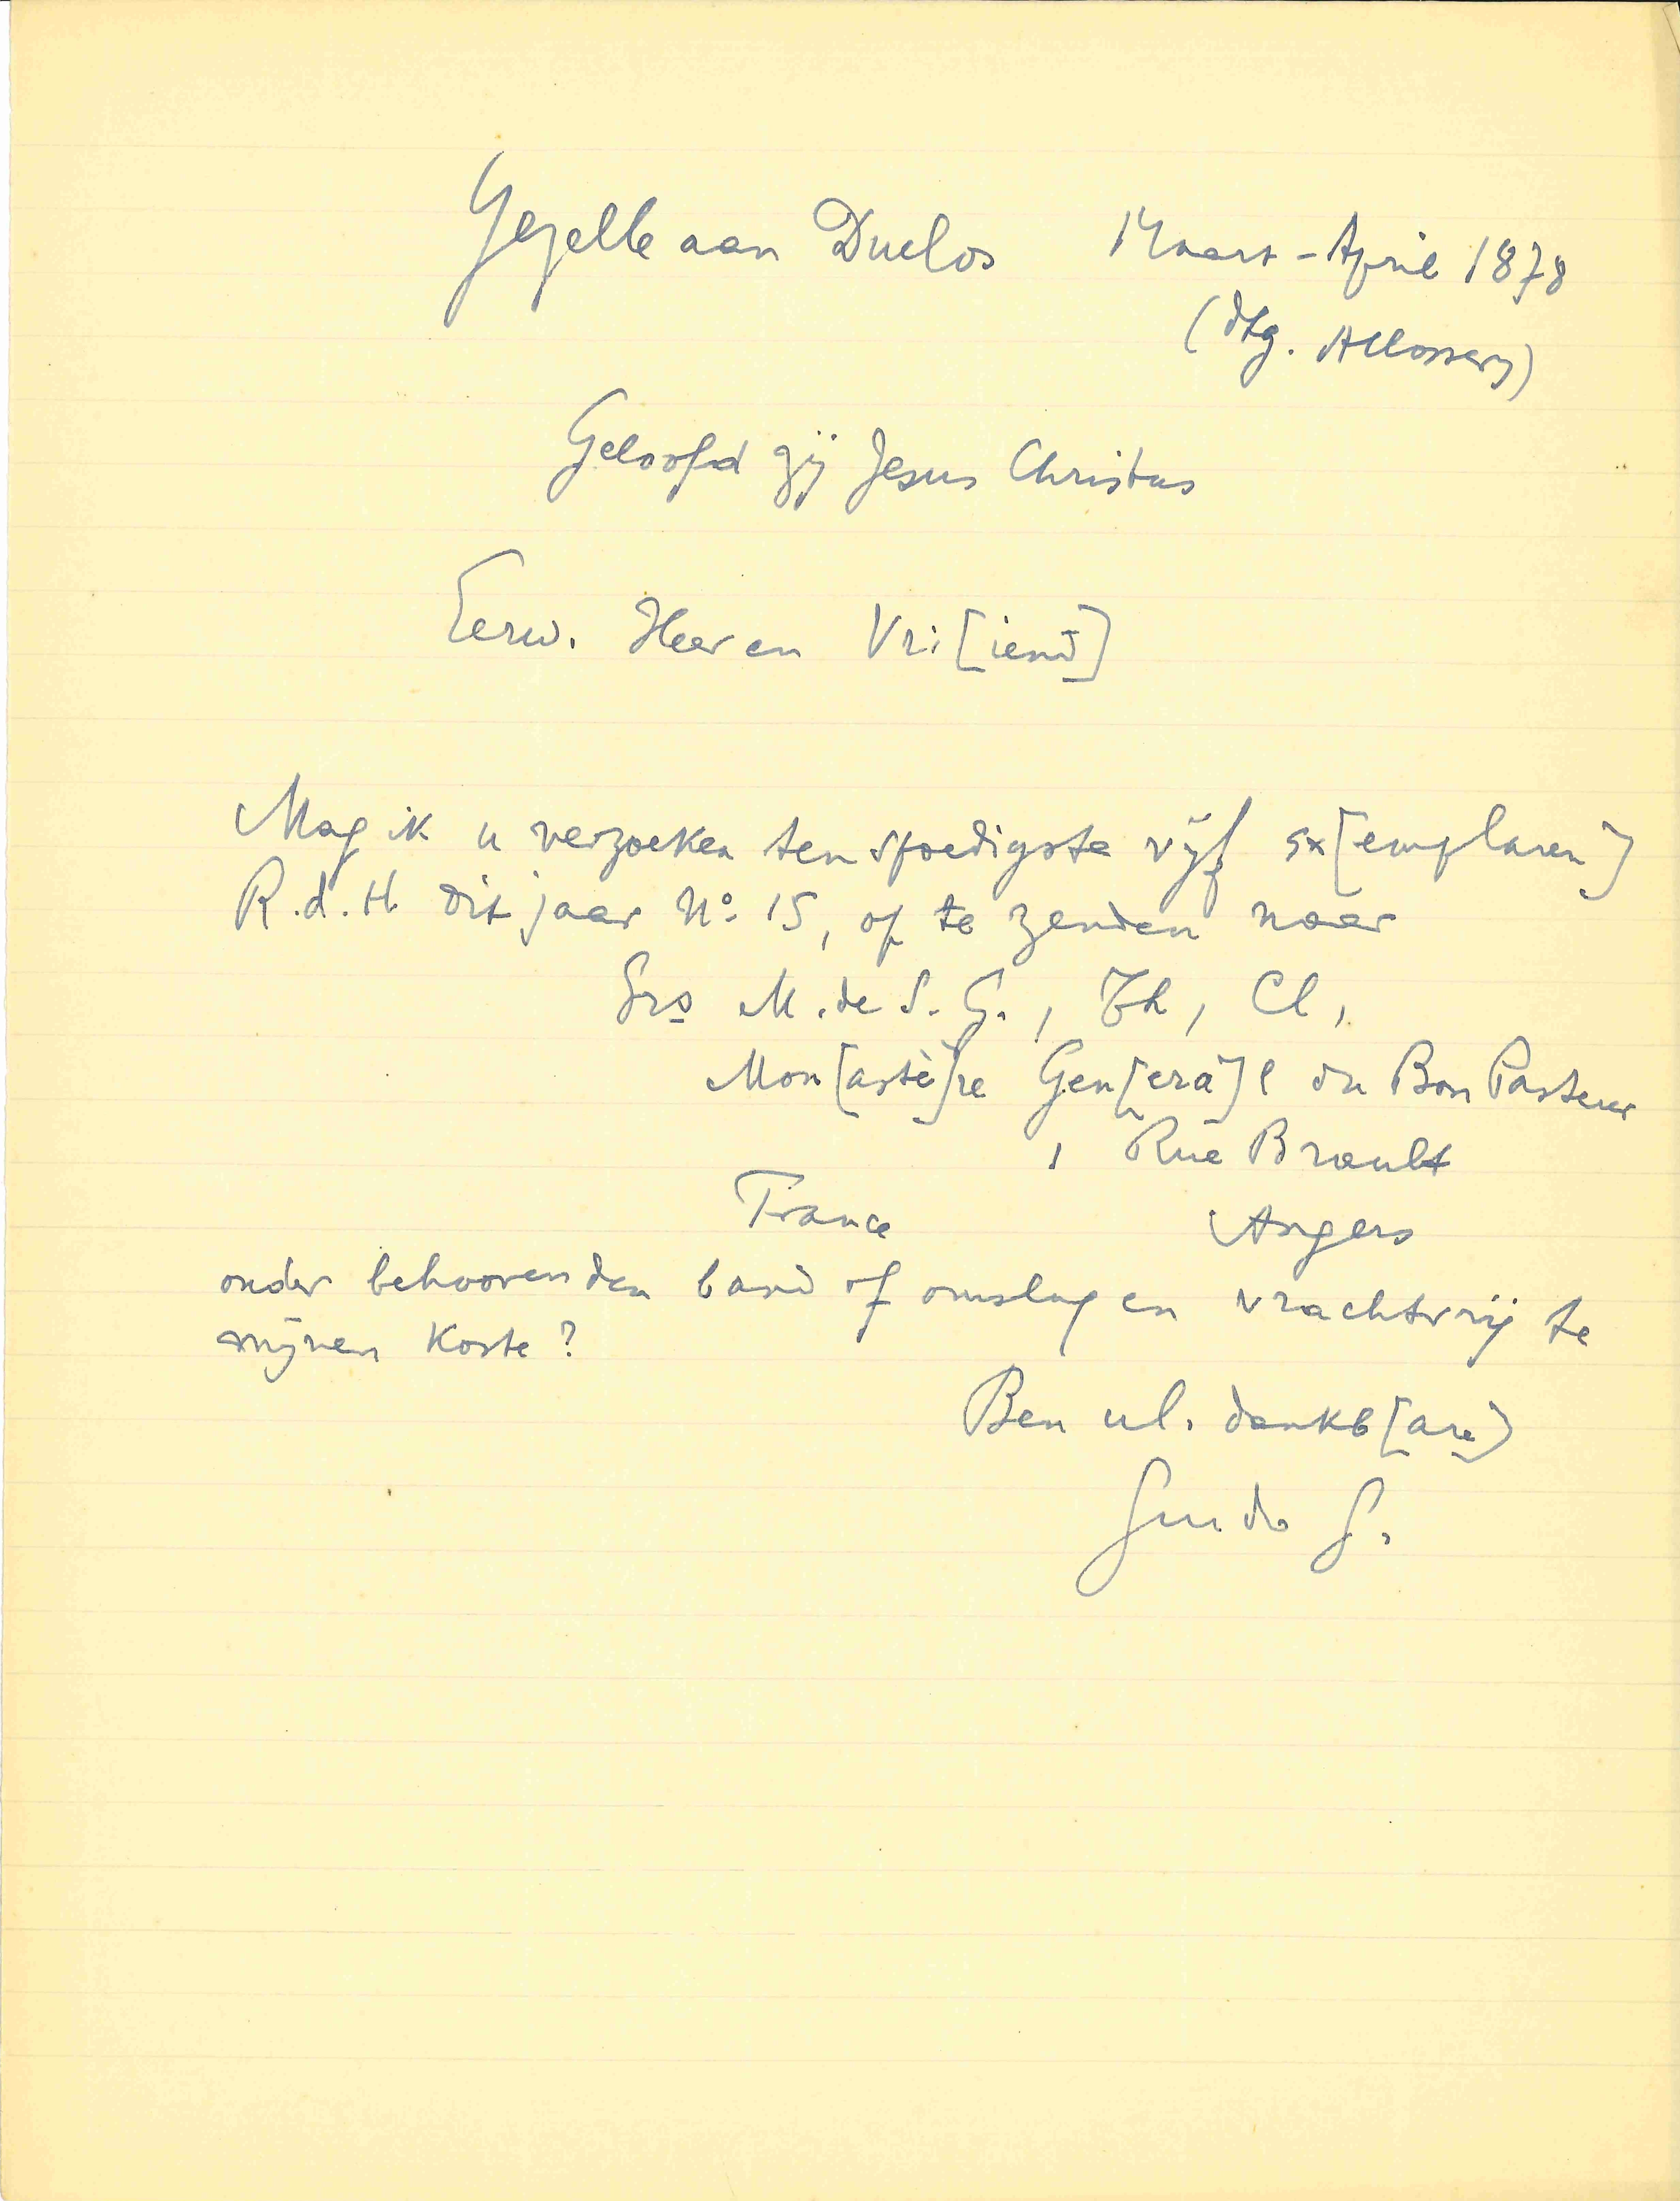 Gezelle aan Duclos Maart-April 1878
(dtg. Allossery)
Geloofd zij Jesus Christus
Eerw. Heer en Vri[iend]
Mag ik u verzoeken ten spoedigste vijf ex[emplaren]
R.d.H. dit jaar No 15, af te zenden naar
Srs M. de S. G., Th, Cl,
Mon[astè]re Gen[era]l du Bon Pasteur
, Rue Brault
France Angers
onder behoorenden band of omslag en vrachtvrij te
mijnen koste?
Ben ul. dankb[are]
Guido G.